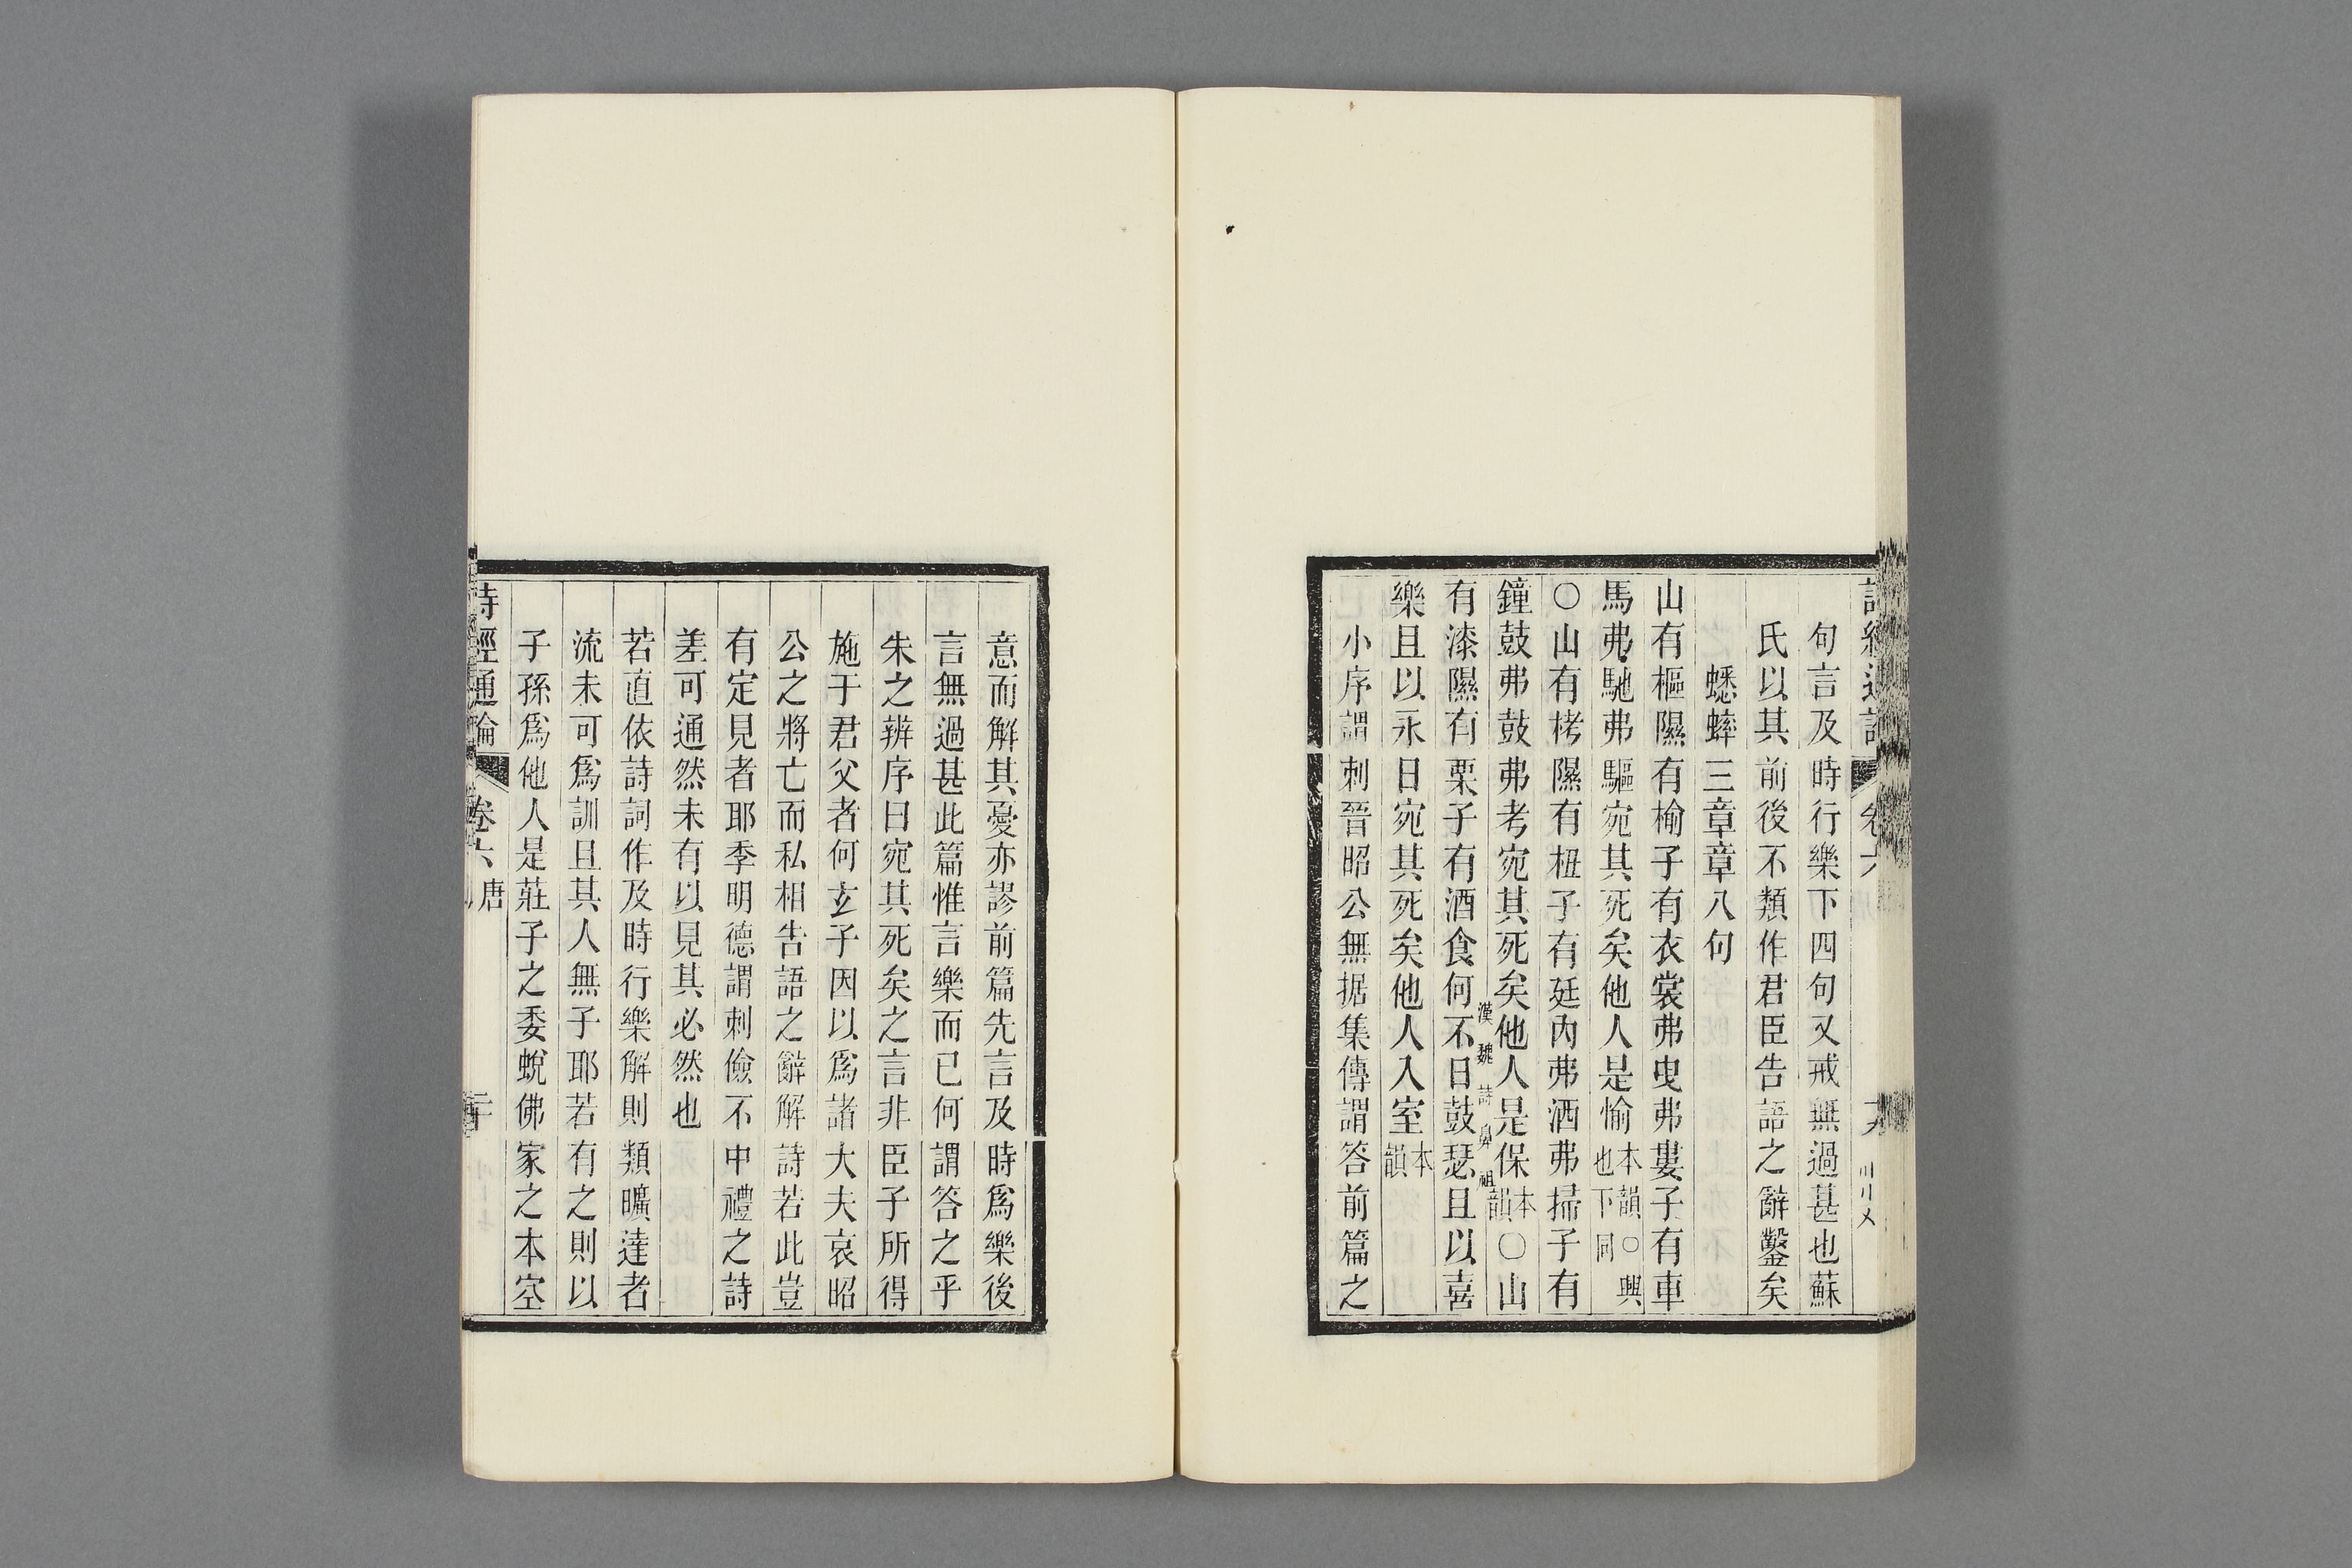 句言及時行樂下四句又戒無過甚也蘇
氏以其前後不類作君臣告語之辭鑿矣
蟋蟀三章章八句
山有樞隰有榆子有衣裳弗曳弗婁子有車
馬弗馳弗驅宛其死矣他人是愉本韻○興也下同
○山有栲隰有杻子有廷內弗洒弗掃子有
鐘鼓弗鼓弗考宛其死矣他人是保本韻○山
漢魏詩鼻祖
有漆隰有栗子有酒食何不日鼓瑟且以喜
樂且以永日宛其死矣他人入室本韻
小序謂刺晉昭公無据集傳謂答前篇之
意而解其憂亦謬前篇先言及時爲樂後
言無過甚此篇惟言樂而已何謂答之乎
朱之辨序曰宛其死矣之言非臣子所得
施于君父者何玄子因以爲諸大夫哀昭
公之將亡而私相告語之辭解詩若此豈
有定見者耶季明德謂刺儉不中禮之詩
差可通然未有以見其必然也
若直依詩詞作及時行樂解則類曠達者
流未可爲訓且其人無子耶若有之則以
子孫爲他人是莊子之委蛻佛家之本空
詩經通論
卷六
唐